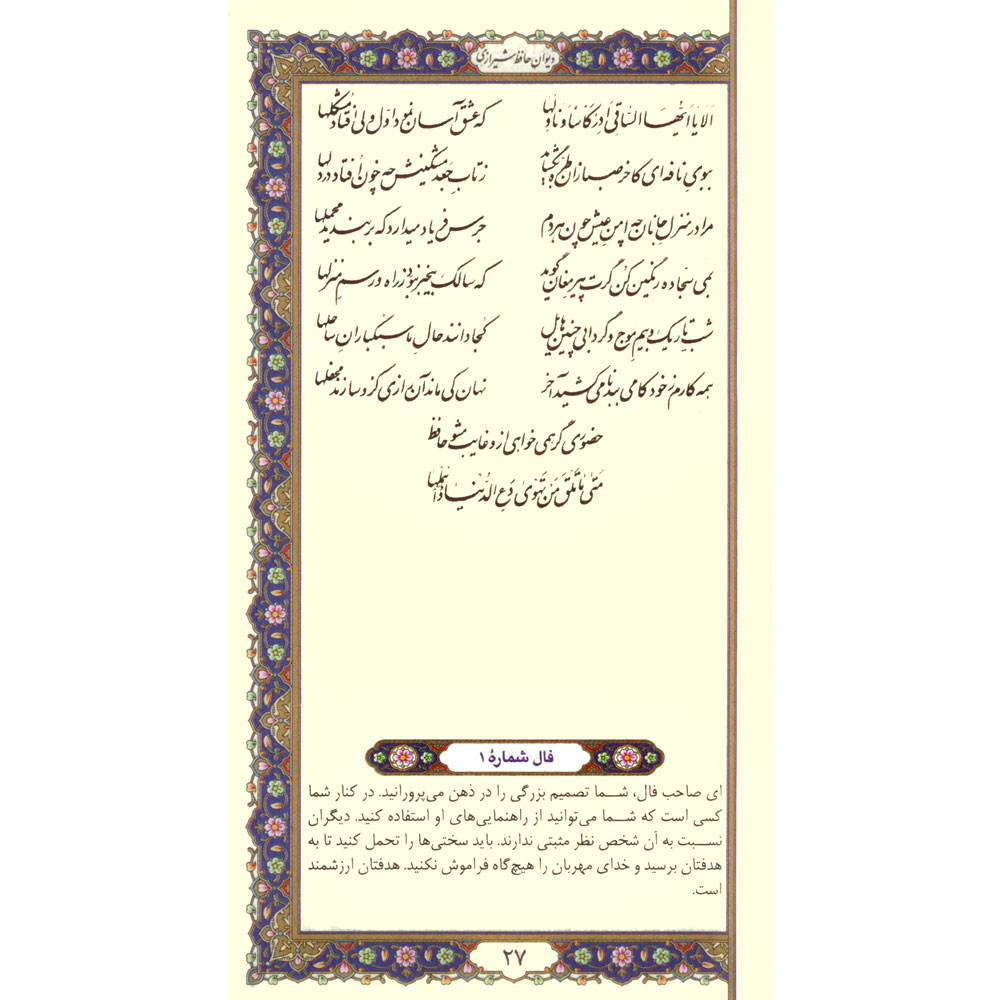 دیوان حافظ شیرازی
الا یا ایّها السّاقی أدِر کاساً و ناوِلها
که عشق آسان نمود اوّل ولی افتاد مُشکلها
ببویِ نافه‌ای کاخر صبا زان طرّه بگشاید
ز تابِ جَعدِ مشکینش چه خون اُفتاد در دلها
مرا در منزلِ جانان چه امنِ عیش چون هر دم
جرس فریاد میدارد که بربندید محملها
بمی سجّاده رنگین کُن گرت پیرِ مغان گوید
که سالک بیخبر نبوَد ز راه و رسمِ منزلها
شبِ تاریک و بیمِ موج و گردابی چنین هایل
کجا دانند حالِ ما سبکبارانِ ساحلها
همه کارم ز خودکامی ببدنامی کشید آخر
نهان کی ماند آن رازی کزو سازند محفلها
حضوری گر همی خواهی ازو غایب مشو حافظ
مَتیٰ ما تَلْقَ مَن تَهویٰ دَعِ الدُّنیا و أهمِلها
فال شمارهٔ ۱
ای صاحب فال، شما تصمیم بزرگی را در ذهن می‌پرورانید. در کنار شما
کسی است که شما می‌توانید از راهنمایی‌های او استفاده کنید. دیگران
نسبت به آن شخص نظر مثبتی ندارند. باید سختی‌ها را تحمل کنید تا به
هدفتان برسید و خدای مهربان را هیچ‌گاه فراموش نکنید. هدفتان ارزشمند
است.
۲۷